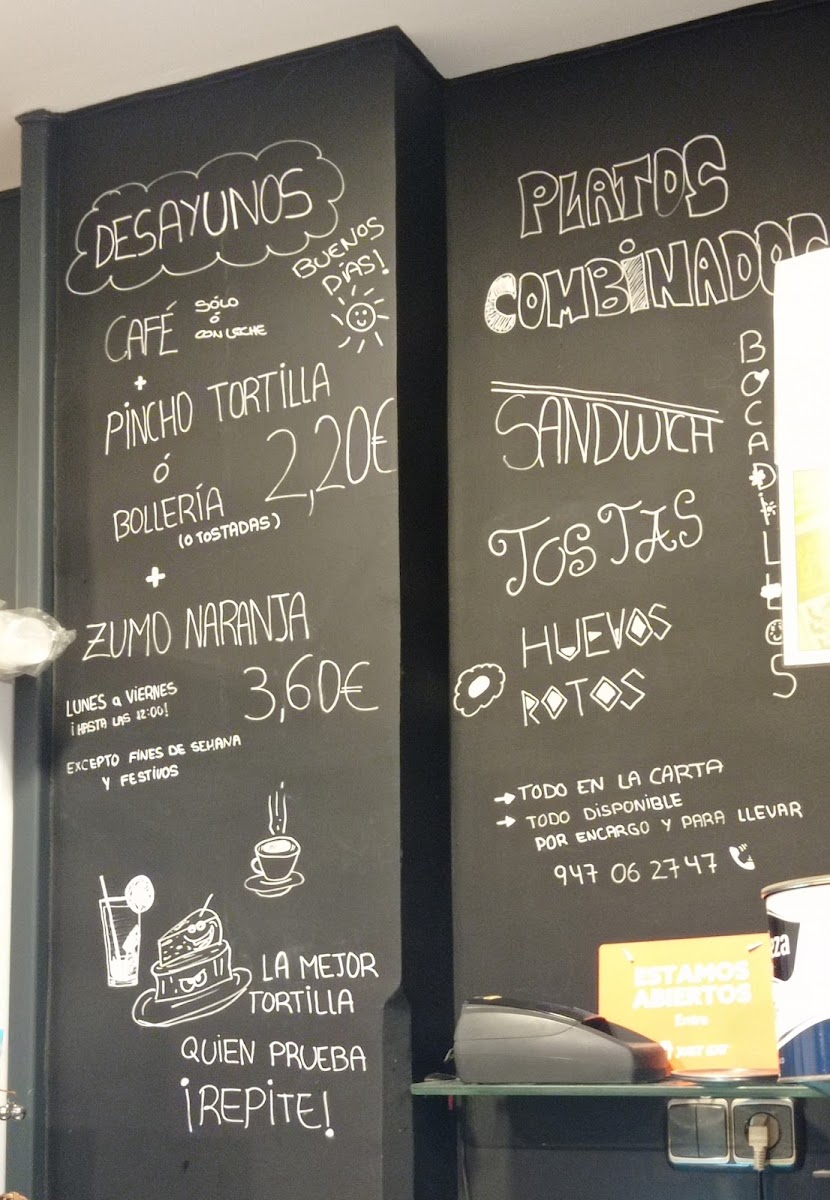 DESAYUNOS
BUENOS
DÍAS!
CAFÉ
SÓLO
Ó
CON LECHE
+
PINCHO TORTILLA
Ó
2,20€
BOLLERÍA
(O TOSTADAS)
+
ZUMO NARANJA
3,60€
LUNES a VIERNES
¡HASTA LAS 12:00!
EXCEPTO FINES DE SEMANA
Y FESTIVOS
LA MEJOR
TORTILLA
QUIEN PRUEBA
¡REPITE!
PLATOS
COMBINADOS
BOCADILLOS
SANDWICH
TOSTAS
HUEVOS
ROTOS
→ TODO EN LA CARTA
→ TODO DISPONIBLE
POR ENCARGO Y PARA LLEVAR
947 06 27 47
ESTAMOS
ABIERTOS
Entra
JUST EAT
za